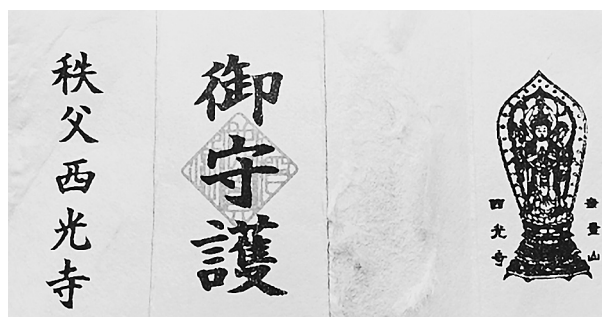 無量山
西光寺
御守護
秩父西光寺